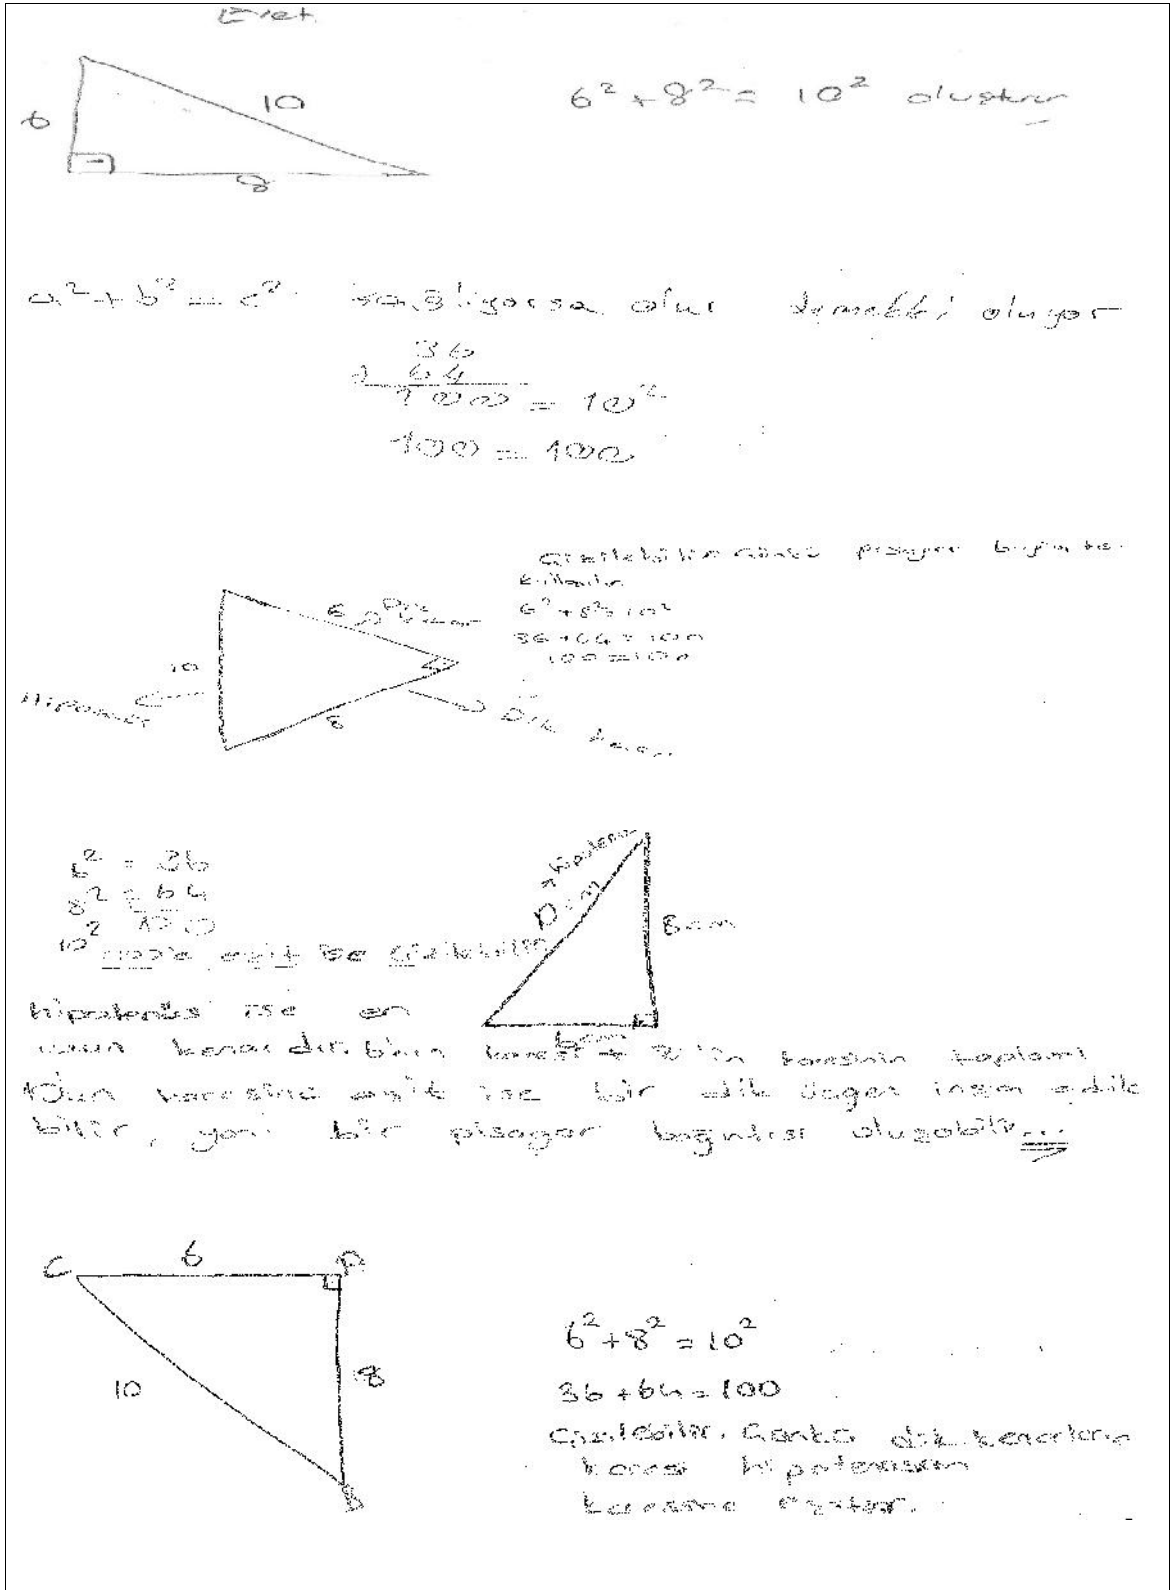 Evet
10
6
8
6² + 8² = 10² oluşturur
a² + b² = c² sağlıyorsa olur demekki oluyor
36
+ 64
100 = 10²
100 = 100
Çizilebilir çünkü pisagor bağıntısı
kullanılır
6² + 8² = 10²
36 + 64 = 100
100 = 100
6 → Dik kenar
10
Hipotenüs
8
Dik kenar
6² = 36
8² = 64
100
10² 100'e eşit ise çizilebilir
→ hipotenüs
10 cm
8 cm
6 cm
Hipotenüs ise en
uzun kenardır. 6'nın karesi + 8'in karesinin toplamı
10'un karesine eşit ise bir dik üçgen inşa edile
bilir, yani bir pisagor bağıntısı oluşabilir...
C 6 A
10
8
B
6² + 8² = 10²
36 + 64 = 100
Çizilebilir. Çünkü dik kenarların
karesi hipotenüsün
karesine eşittir.